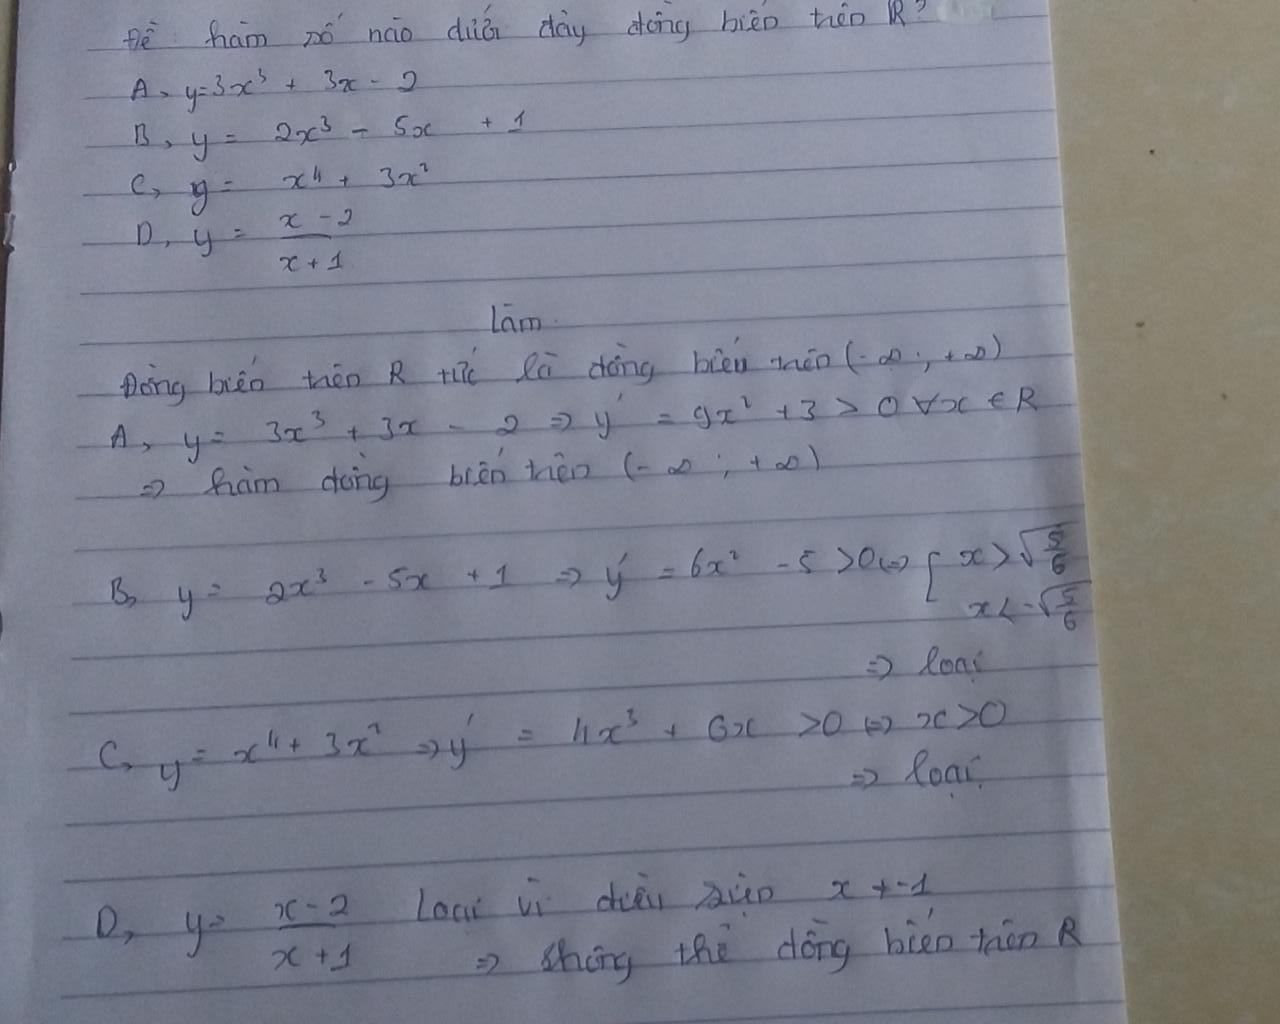 Đề: hàm số nào dưới đây đồng biến trên R?
A, y=3x³ + 3x - 2
B, y = 2x³ - 5x + 1
C, y = x⁴ + 3x²
D, y = \frac{x - 2}{x + 1}
làm
Đồng biến trên R tức là đồng biến trên (-∞ ; +∞)
A, y = 3x³ + 3x - 2 => y' = 9x² + 3 > 0 ∀x ∈ R
=> hàm đồng biến trên (-∞ ; +∞)
B, y = 2x³ - 5x + 1 => y' = 6x² - 5 > 0 <=> [ x > √\frac{5}{6}
x < -√\frac{5}{6}
=> loại
C, y = x⁴ + 3x² => y' = 4x³ + 6x > 0 <=> x > 0
=> loại
D, y = \frac{x - 2}{x + 1} Loại vì điều x ≠ -1
=> không thể đồng biến trên R